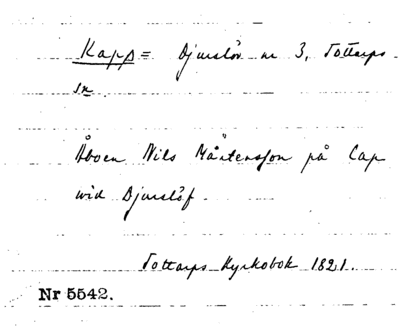 Kapp = Djurslöv nr 3, Tottarps
sn
Åboen Nils Mårtensson på Cap
wid Djurslöf.
Tottarps Kyrkobok 1821.
Nr 5542.